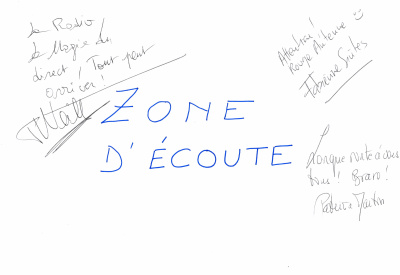 La Radio,
la Magie du
direct ! Tout peut
arriver !
Attention !
Rouge Antenne
ZONE
D'ÉCOUTE
Longue route à vous
tous ! Bravo !
Patrice Martin